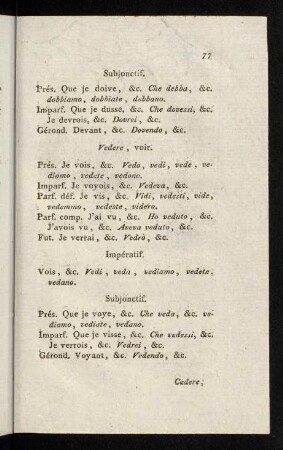 77
Subjonctif.
Prés. Que je doive, &c. Che debba, &c.
dobbiamo, dobbiate, dobbano.
Imparf. Que je dusse, &c. Che dovessi, &c.
Je devrois, &c. Dovrei, &c.
Gérond. Devant, &c. Dovendo, &c.
Vedere, voir.
Prés. Je vois, &c. Vedo, vedi, vede, ve-
diamo, vedete, vedono.
Imparf. Je voyois, &c. Vedeva, &c.
Parf. déf. Je vis, &c. Vidi, vedesti, vide,
vedemmo, vedeste, videro.
Parf. comp. J'ai vu, &c. Ho veduto, &c.
J'avois vu, &c. Aveva veduto, &c.
Fut. Je verrai, &c. Vedrò, &c.
Impératif.
Vois, &c. Vedi, veda, vediamo, vedete,
vedano.
Subjonctif.
Prés. Que je voye, &c. Che veda, &c. ve-
diamo, vediate, vedano.
Imparf. Que je visse, &c. Che vedessi, &c.
Je verrois, &c. Vedrei, &c.
Gérond. Voyant, &c. Vedendo, &c.
Cadere,